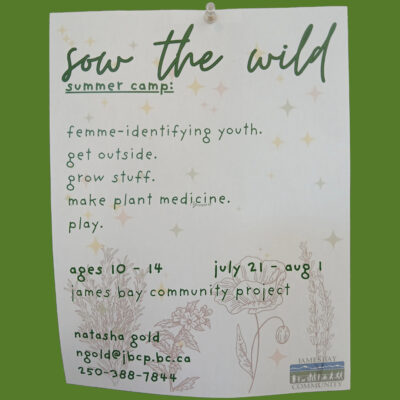 sow the wild
summer camp:
femme-identifying youth.
get outside.
grow stuff.
make plant medicine.
play.
ages 10 - 14 july 21 - aug 1
james bay community project
natasha gold
ngold@jbcp.bc.ca
250-388-7844
JAMES BAY
COMMUNITY